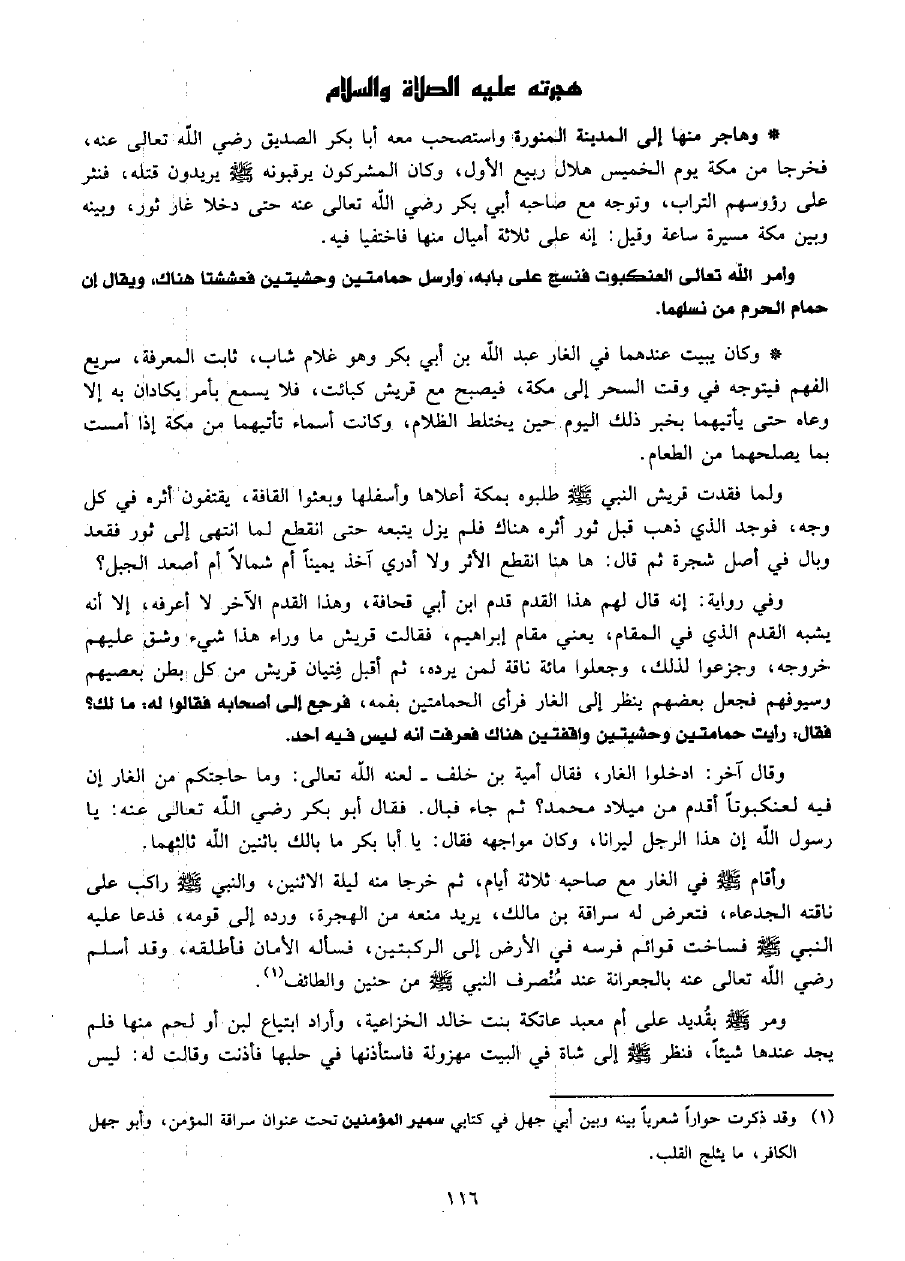 هجرته عليه الصلاة والسلام
* وهاجر منها إلى المدينة المنورة واستصحب معه أبا بكر الصديق رضي الله تعالى عنه،
فخرجا من مكة يوم الخميس هلال ربيع الأول، وكان المشركون يرقبونه ﷺ يريدون قتله، فنثر
على رؤوسهم التراب، وتوجه مع صاحبه أبي بكر رضي الله تعالى عنه حتى دخلا غار ثور، وبينه
وبين مكة مسيرة ساعة وقيل: إنه على ثلاثة أميال منها فاختفيا فيه.
وأمر الله تعالى العنكبوت فنسج على بابه، وأرسل حمامتين وحشيتين فعششتا هناك، ويقال إن
حمام الحرم من نسلهما.
* وكان يبيت عندهما في الغار عبد الله بن أبي بكر وهو غلام شاب، ثابت المعرفة، سريع
الفهم فيتوجه في وقت السحر إلى مكة، فيصبح مع قريش كبائت، فلا يسمع بأمر يكادان به إلا
وعاه حتى يأتيهما بخبر ذلك اليوم حين يختلط الظلام، وكانت أسماء تأتيهما من مكة إذا أمست
بما يصلحهما من الطعام.
ولما فقدت قريش النبي ﷺ طلبوه بمكة أعلاها وأسفلها وبعثوا القافة، يقتفون أثره في كل
وجه، فوجد الذي ذهب قبل ثور أثره هناك فلم يزل يتبعه حتى انقطع لما انتهى إلى ثور فقعد
وبال في أصل شجرة ثم قال: ها هنا انقطع الأثر ولا أدري آخذ يميناً أم شمالاً أم أصعد الجبل؟
وفي رواية: إنه قال لهم هذا القدم قدم ابن أبي قحافة، وهذا القدم الآخر لا أعرفه، إلا أنه
يشبه القدم الذي في المقام، يعني مقام إبراهيم، فقالت قريش ما وراء هذا شيء وشق عليهم
خروجه، وجزعوا لذلك، وجعلوا مائة ناقة لمن يرده، ثم أقبل فِتيان قريش من كل بطن بعصيهم
وسيوفهم فجعل بعضهم ينظر إلى الغار فرأى الحمامتين بفمه، فرجع إلى أصحابه فقالوا له: ما لك؟
فقال: رأيت حمامتين وحشيتين واقفتين هناك فعرفت أنه ليس فيه أحد.
وقال آخر: ادخلوا الغار، فقال أمية بن خلف ـ لعنه الله تعالى: وما حاجتكم من الغار إن
فيه لعنكبوتاً أقدم من ميلاد محمد؟ ثم جاء فبال. فقال أبو بكر رضي الله تعالى عنه: يا
رسول الله إن هذا الرجل ليرانا، وكان مواجهه فقال: يا أبا بكر ما بالك باثنين الله ثالثهما.
وأقام ﷺ في الغار مع صاحبه ثلاثة أيام، ثم خرجا منه ليلة الاثنين، والنبي ﷺ راكب على
ناقته الجدعاء، فتعرض له سراقة بن مالك، يريد منعه من الهجرة، ورده إلى قومه، فدعا عليه
النبي ﷺ فساخت قوائم فرسه في الأرض إلى الركبتين، فسأله الأمان فأطلقه، وقد أسلم
رضي الله تعالى عنه بالجعرانة عند مُنْصرف النبي ﷺ من حنين والطائف(١).
ومر ﷺ بقُديد على أم معبد عاتكة بنت خالد الخزاعية، وأراد ابتياع لبن أو لحم منها فلم
يجد عندها شيئاً، فنظر ﷺ إلى شاة في البيت مهزولة فاستأذنها في حلبها فأذنت وقالت له: ليس
(١) وقد ذكرت حواراً شعرياً بينه وبين أبي جهل في كتابي سمير المؤمنين تحت عنوان سراقة المؤمن، وأبو جهل
الكافر، ما يثلج القلب.
١١٦